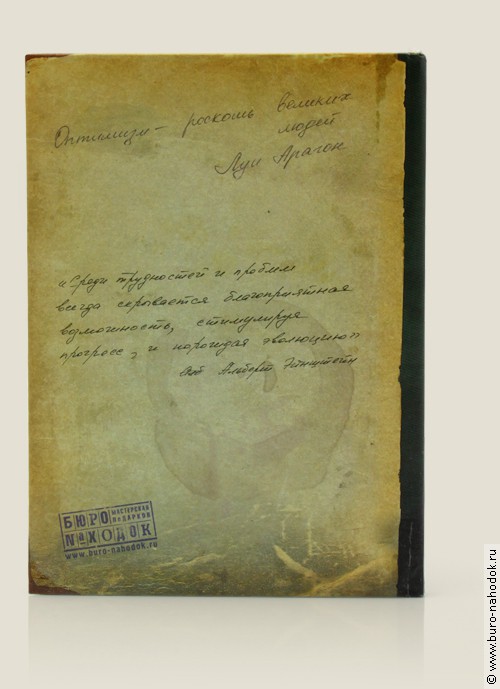 Оптимизм - роскошь великих
людей
Луи Арагон
«Среди трудностей и проблем
всегда скрывается благоприятная
возможность, стимулируя
прогресс, и порождая эволюцию»
Альберт Эйнштейн
БЮРО МАСТЕРСКАЯ ПОДАРКОВ
№ХОДОК
www.buro-nahodok.ru
© www.buro-nahodok.ru